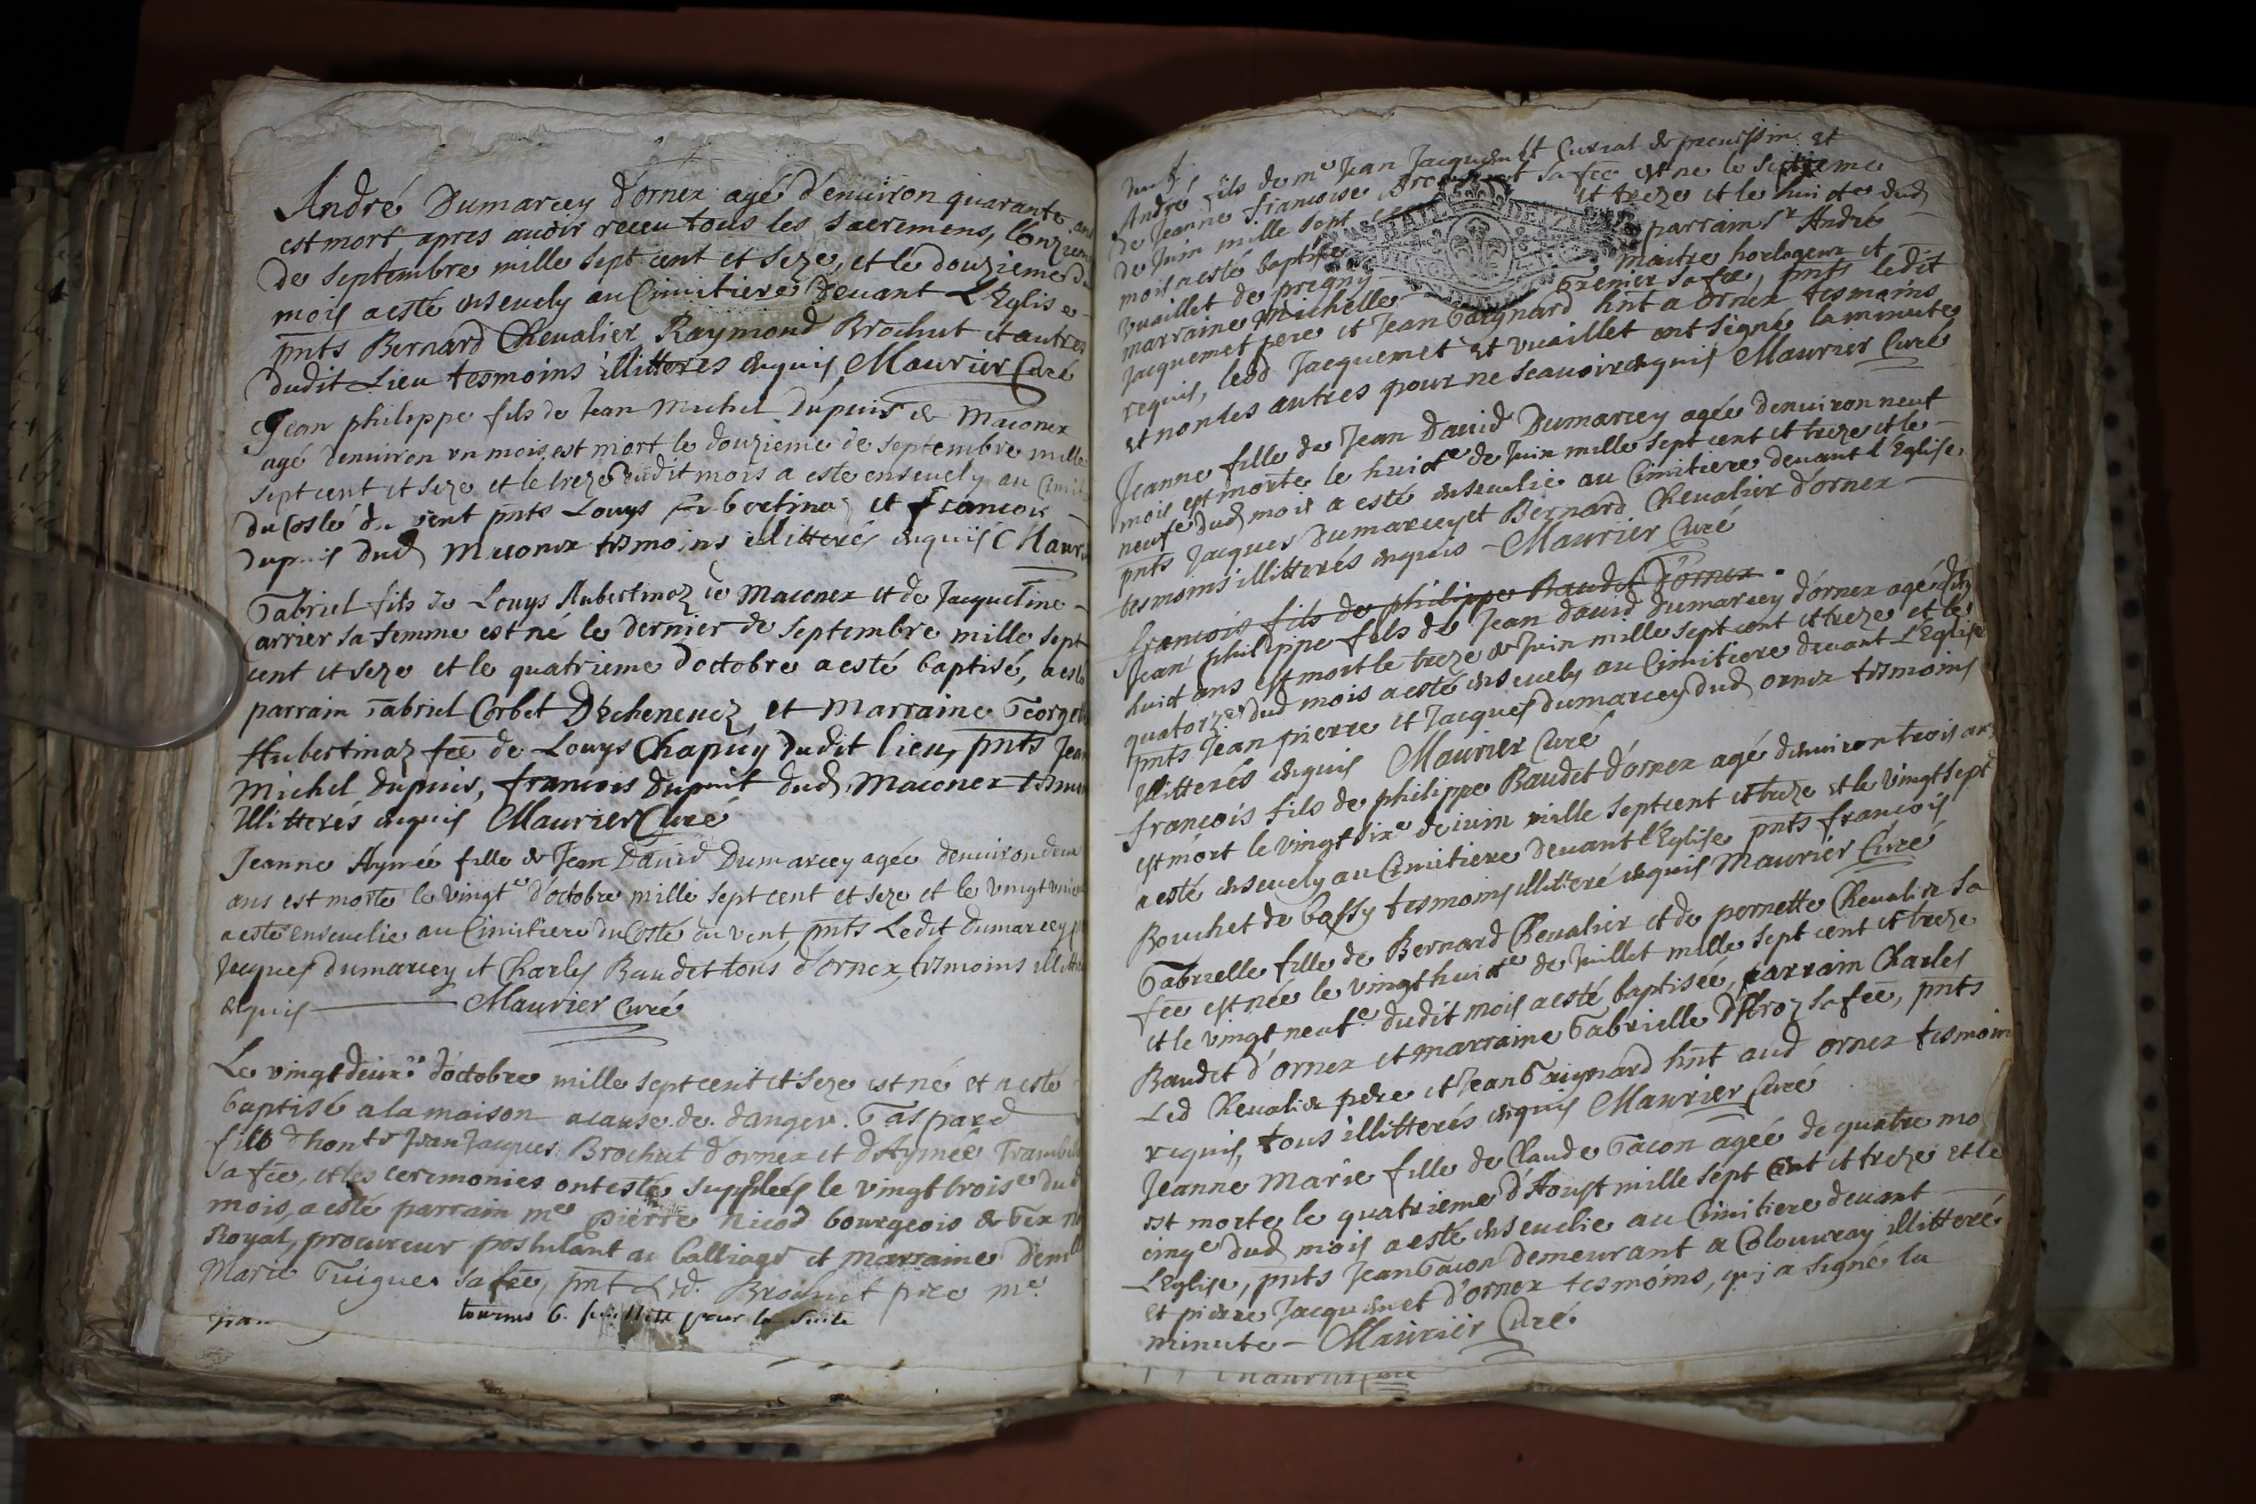 André Dumarcey d'ornex agé d'enuiron quarante ans
est mort, apres auoir receu tous les sacremens, l'onzieme
de septembre mille sept cent et seze, et le douzieme du
mois a esté enseuely au Cimitiere deuant L'Eglise
pnts Bernard Cheualier, Raymond Brochut et autres
dudit Lieu tesmoins illitteres enquis Maurier Curé
Jean philippe fils de Jean Michel Dupuis de Maconex
agé denuiron un mois, est mort le douzieme de septembre mille
sept cent et seze et le treze dudit mois a esté enseuely au Cimit
du Costé du vent pnts Louys et francois
dupuis dud Maconex tesmoins illitterés enquis Maurier
Gabriel fils de Louys Aubertinaz de Maconex et de Jacqueline
Carrier sa femme est né le dernier de septembre mille sept
cent et seze et le quatrieme d'octobre a esté baptisé, a esté
parrain Gabriel Corbet D'Echeneuez et Marraine George
Hubertinaz fee de Louys Chapuy dudit lieu, pnts Jean
Michel Dupuis, francois dupuit dud Maconex tesmoins
Illitterés enquis Maurier Curé
Jeanne Aymée fille de Jean Dauid Dumarcey agée denuiron deux
ans est morte le vingte d'octobre mille sept cent et seze et le vingt unie
a esté enseuelie au Cimitiere du Costé du vent, pnts Ledit Dumarcey
Jacques dumarcey et Charles Baudet tous d'ornex, tesmoins illitte
enquis — Maurier Curé
Le vingt deuxe d'octobre mille sept cent et seze est né et a esté
baptisé a la maison a cause de danger. Gaspard
fils d'hont Jean Jacques Brochut d'ornex et d'Aymée
sa fee, et les ceremonies ont esté supplées le vingt troise dud
mois, a esté parrain me pierre Nicod bourgeois de Gex
Royal, procureur postulant au balliage et marraine demlle
Marie Guigue sa fee, pnt Led. Brochut père me
Jean
tournes 6. feuillets pour la suite
André fils de me Jean Jacquemet Curial de preuissin et
de Jeanne francoise sa fee est né le septieme
de Juin mille sept et treze et le huicte dud
mois a esté baptisé parrain sr André
vuaillet de pregny maitre horlogeur et
marraine Michelle Grenier sa fee, pnts ledit
Jaquemet pere et Jean Gaignard hnt a ornex tesmoins
requis, led Jacquemet et vuaillet ont signé la minute
et non les autres pour ne scauoir enquis Maurier Curé
Jeanne fille de Jean Dauid Dumarcey agée denuiron neuf
mois est morte le huicte de Juin mille sept cent et treze et le
neufe dud mois a esté enseuelie au Cimitiere deuant l'Eglise,
pnts Jacques Dumarcey et Bernard Cheualier d'ornex
tesmoins illitterés enquis — Maurier Curé
francois fils de philippe Baudet d'ornex
Jean philippe fils de Jean dauid dumarcey d'ornex agé de
huict ans est mort le treze de Juin mille sept cent et treze et le
quatorze dud mois a esté enseuely au Cimitiere deuant L'Eglise
pnts Jean pierre et Jacques dumarcey dud ornex tesmoins
illitterés enquis Maurier Curé
francois fils de philippe Baudet d'ornex agé denuiron trois ans
est mort le vingt sixe de iuin mille sept cent et treze et le vingt sept
a esté enseuely au Cimitiere deuant l'Eglise pnts francois
Bouchet de bossy tesmoins illitteré enquis Maurier Curé
Gabrielle fille de Bernard Cheualier et de pernette Cheualier sa
fee est née le vingt huicte de Juillet mille sept cent et treze
et le vingt neufe dudit mois a esté baptisée, parrain Charles
Baudet d'ornex et marraine Gabrielle sa fee, pnts
Led Cheualier père et Jean Gaignard hnt aud ornex tesmoins
requis, tous illitterés enquis Maurier Curé
Jeanne Marie fille de Claude Gacon agée de quatre mo
est morte le quatrieme d'Aoust mille sept cent et treze et le
cinqe dud mois a esté enseuelie au Cimitiere deuant
L'Eglise, pnts Jean Gacon demeurant a Colouuray illitteré
et pierre Jacquemet d'ornex tesmoins, qui a signé la
minute — Maurier Curé